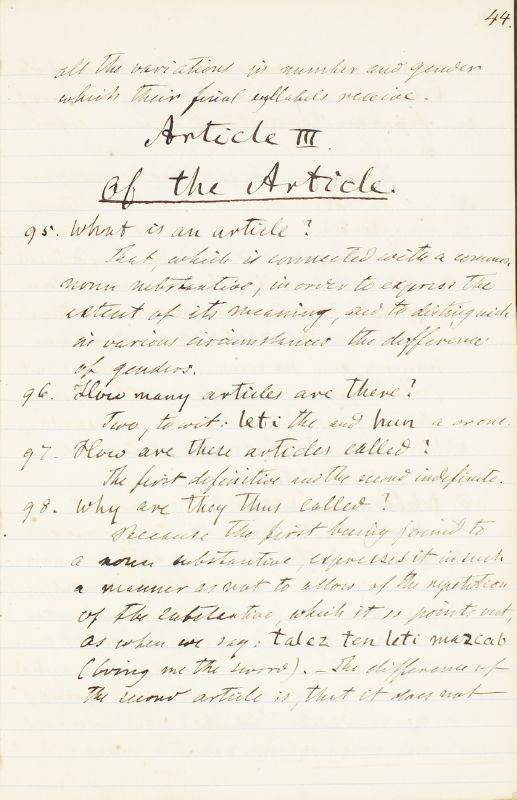 44.
all the variations in number and gender
which their final syllabels receive.
Article III.
Of the Article.
95. What is an article?
That, which is connected with a common
noun substantive, in order to express the
extent of its meaning, and to distinguish
in various circumstances the difference
of genders.
96. How many articles are there?
Two, to wit: leti the and hun a or one.
97. How are these articles called?
The first definitive and the second indefinite.
98. Why are they thus called?
Because the first being joined to
a noun substantive, expresses it in such
a manner as not to allow of the repetition
of the substantive, which it so points out,
as when we say: talez ten leti mazcab
(bring me the sword). – The difference of
the second article is, that it does not